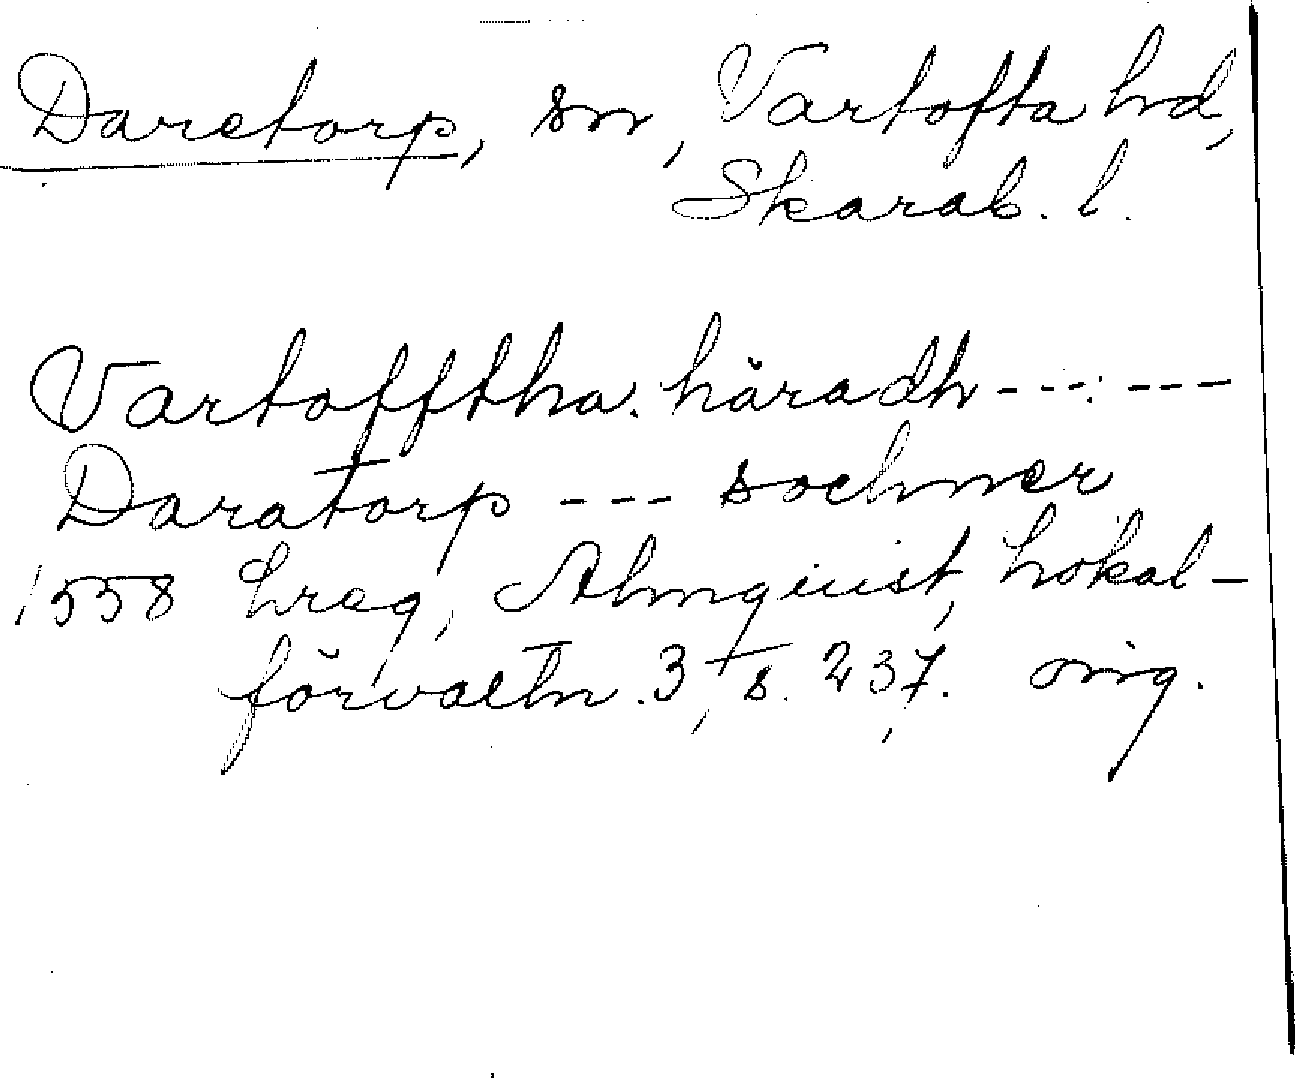 Daretorp, sn, Vartofta hd,
Skarab. l.
Vartofftha häradh --- ---
Daratorp --- sochner
1558 Lreg, Almquist, Lokal-
förvaltn. 3, s. 237. orig.